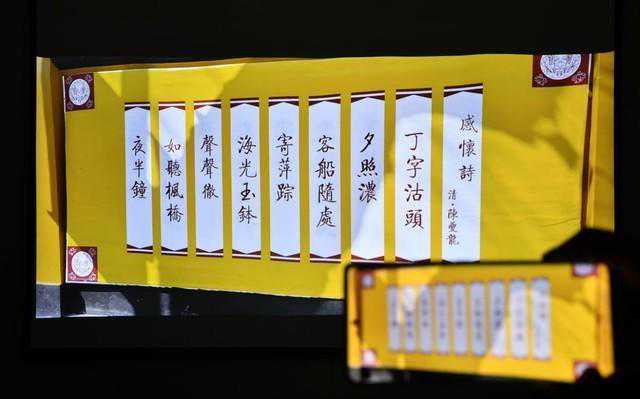 感懷詩
清·陳愛龍
丁字沽頭
夕照濃
客船隨處
寄萍踪
海光玉鉢
聲聲徹
如聽楓橋
夜半鐘